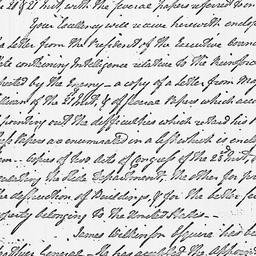 21 & 21 Inst with the several papers referred to in
Your Excellency will receive herewith enclos
Letter from the President of the Executive Counc
late containing Intelligence relative to the Reinforce
by the Enemy — a copy of a Letter from Maj
of the 21st Inst, & of several Papers which acco
pointing out the difficulties which retard his
Papers are enumerated in a List which is encl
Copies of two Acts of Congress of the 28 Inst,
the State Department, the other for pr
the destruction of Buildings, & for the better se
property belonging to the United States —
James Wilkinson Esquire has be
General — He has accepted the Appoint